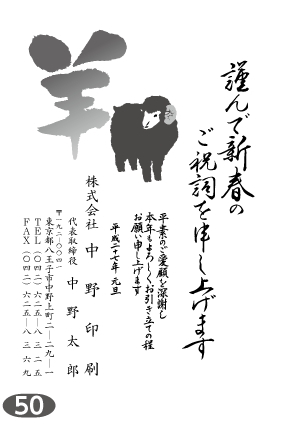 謹んで新春の
ご祝詞を申し上げます
羊
平素のご愛顧を深謝し
本年もよろしくお引き立ての程
お願い申し上げます
平成二十七年 元旦
株式会社 中野印刷
代表取締役 中野太郎
〒一九二-〇〇四一
東京都八王子市中野上町二-二九-一
TEL(〇四二)六二五-八三二五
FAX(〇四二)六二五-八三六九
50